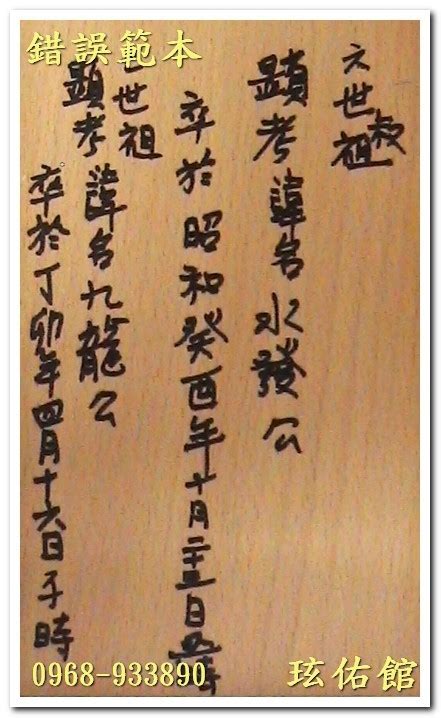 錯誤範本
六世叔祖
顯考諱名水發公
卒於昭和癸酉年十月二十五日
世祖
顯考諱名九龍公
卒於丁卯年四月十六日子時
0968-933890
玹佑館